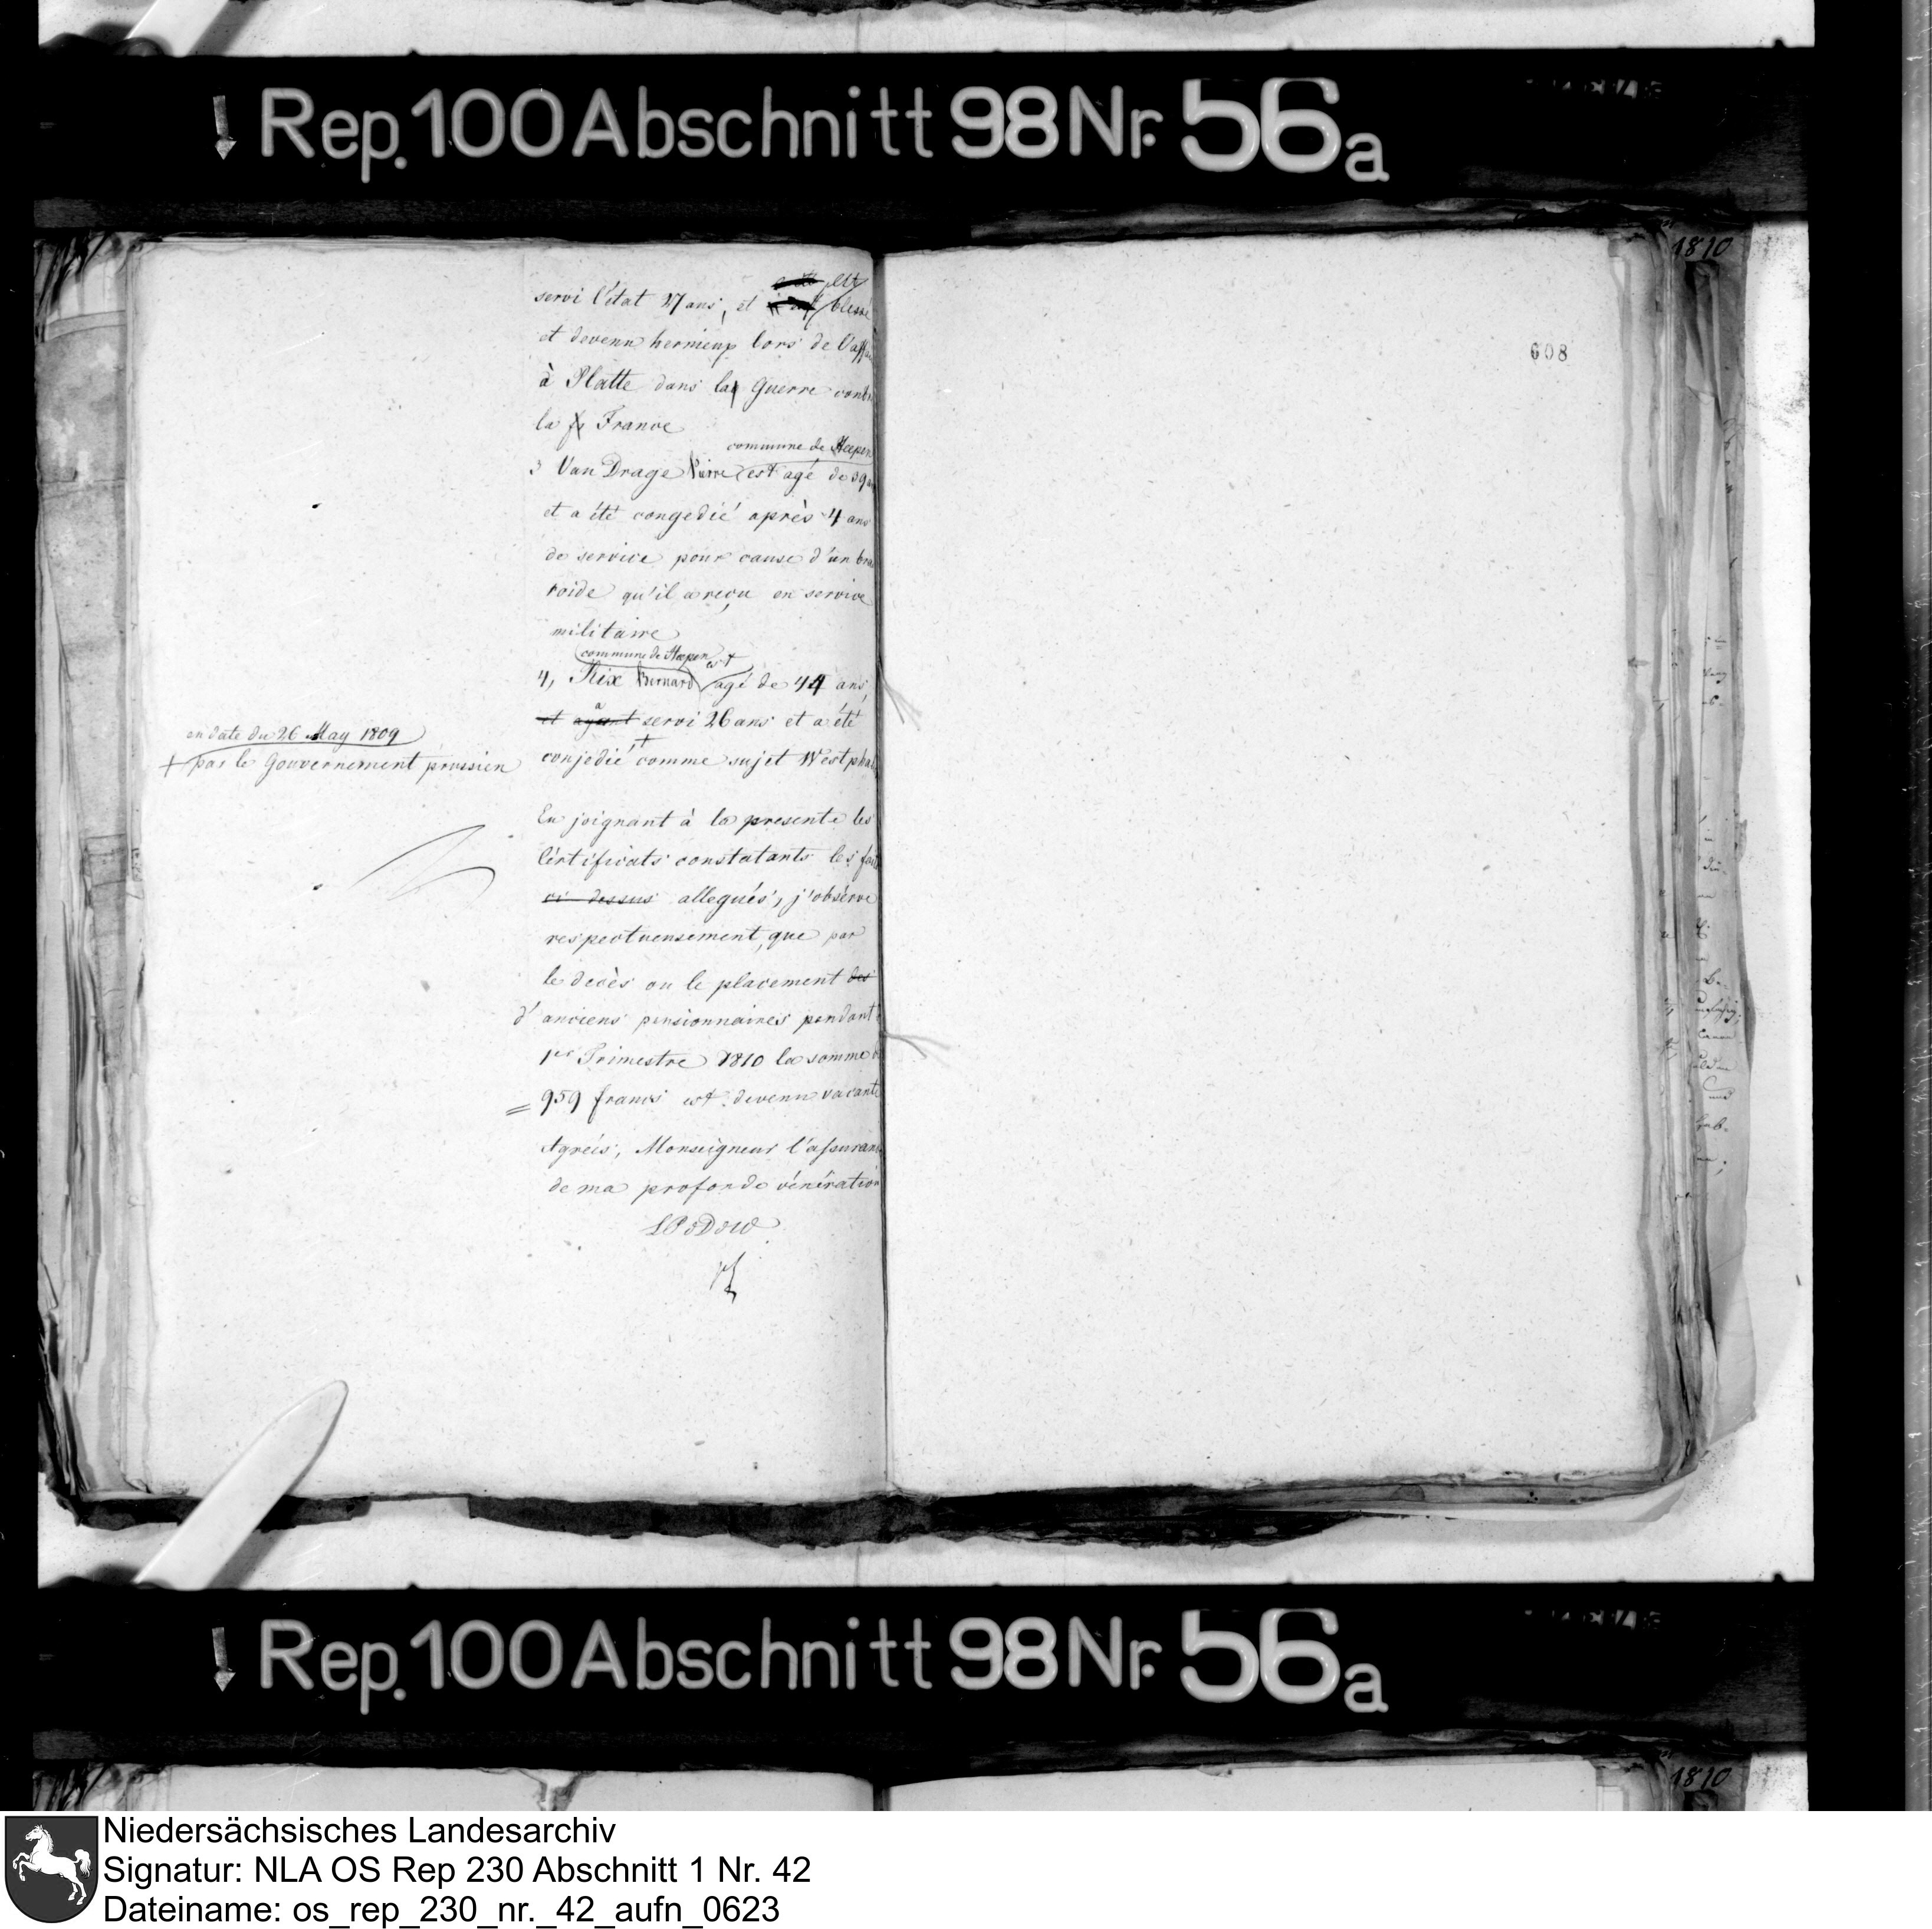 Rep. 100 Abschnitt 98 Nr. 56a
1810
608
servi l'état 27 ans, et blessé
et devenu hernieux lors de l'affai
à Platte dans la Guerre contr
la France
commune de Heepen
3 Van Drage Pierre est agé de 39 an
et a été congedié après 4 ans
de service pour cause d'un bra
roide qu'il a reçu en service
militaire
commune de Heepen est
4, Rix Bernard agé de 44 ans,
et ayant a servi 26 ans et a été
en date du 26 May 1809
+ par le Gouvernement prussien
conjedié + comme sujet Westphal
En joignant à la presente les
Certificats constatants les fait
ci dessus allegués, j'observe
respectueusement, que par
le decès ou le placement des
d'anciens pensionnaires pendant
1er Trimestre 1810 la somme
= 959 francs est devenu vacante
Agreés, Monseigneur l'assuran
de ma profonde vénération
Rep. 100 Abschnitt 98 Nr. 56a
1810
Niedersächsisches Landesarchiv
Signatur: NLA OS Rep 230 Abschnitt 1 Nr. 42
Dateiname: os_rep_230_nr._42_aufn_0623